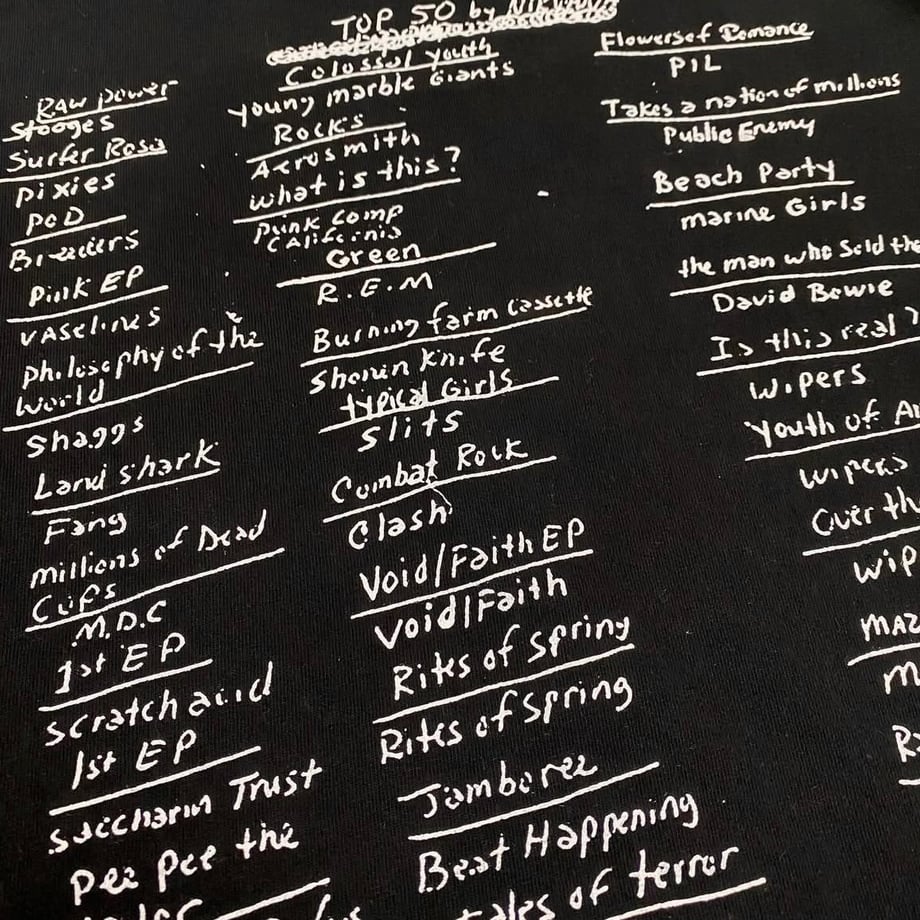 TOP 50 by NIRVANA
Raw power
Stooges
Surfer Rosa
pixies
POD
Breeders
Pink EP
vaselines
Philosophy of the
World
Shaggs
Land shark
Fang
millions of Dead
Cops
M.D.C
1st EP
Scratch acid
1st EP
Saccharin Trust
Pee Pee the
Colossul youth
young marble Giants
Rocks
Aerosmith
what is this?
punk comp
California
Green
R.E.M
Burning farm cassette
Shonin Knife
typical Girls
slits
Combat Rock
Clash
Void/Faith EP
Void/Faith
Rites of Spring
Rites of Spring
Jamboree
Beat Happening
tales of terror
Flowers of Romance
PIL
Takes a nation of millions
Public Enemy
Beach Party
marine Girls
the man who Sold the
David Bowie
Is this real?
Wipers
Youth of
wipers
Over